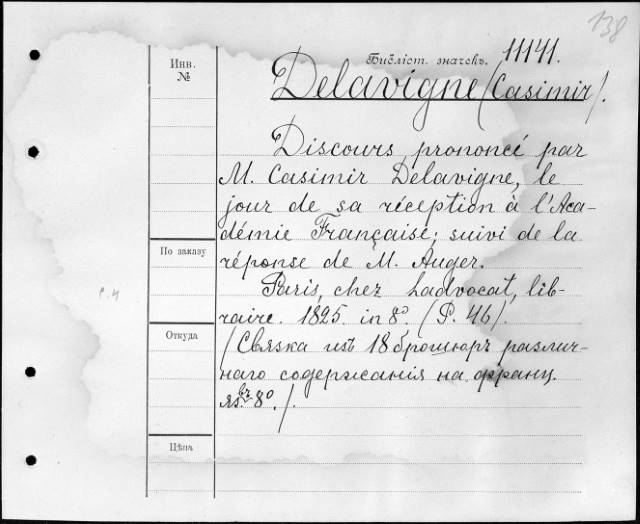 138
Инв.
№
Библіот. значекъ. 11141.
Delavigne (Casimir).
Discours prononcé par
M. Casimir Delavigne, le
jour de sa réception à l'Aca-
démie Française; suivi de la
По заказу
réponse de M. Auger.
Paris, chez Ladvocat, lib-
raire. 1825. in 8º. (P. 46).
Откуда
(Связка изъ 18 брошюръ различ-
наго содержанія на франц.
яз. въ 8º.).
Цѣна